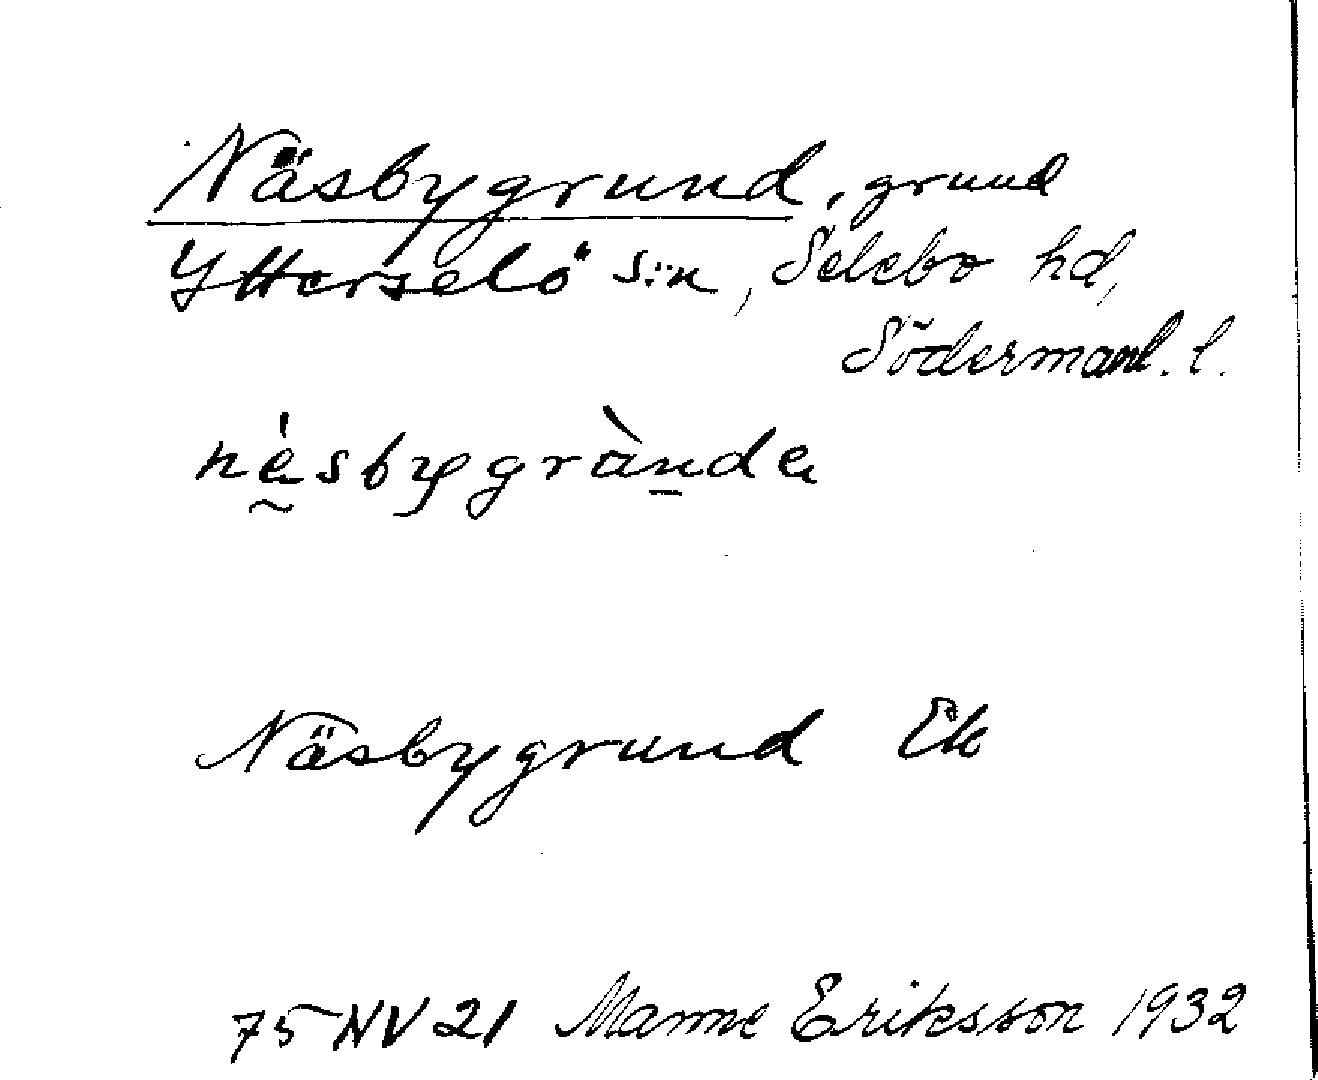 Näsbygrund, grund
Ytterselö s:n, Selebo hd,
Södermanl. l.
Näsbygrund Ek
75 NV 21 Manne Eriksson 1932